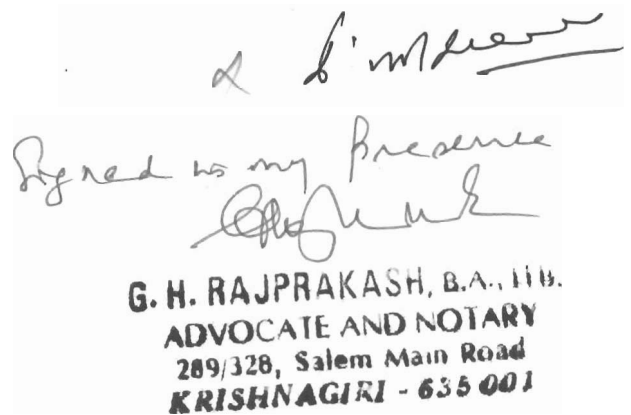 Signed in my Presence
G. H. RAJPRAKASH, B.A., LLB.
ADVOCATE AND NOTARY
289/328, Salem Main Road
KRISHNAGIRI - 635 001